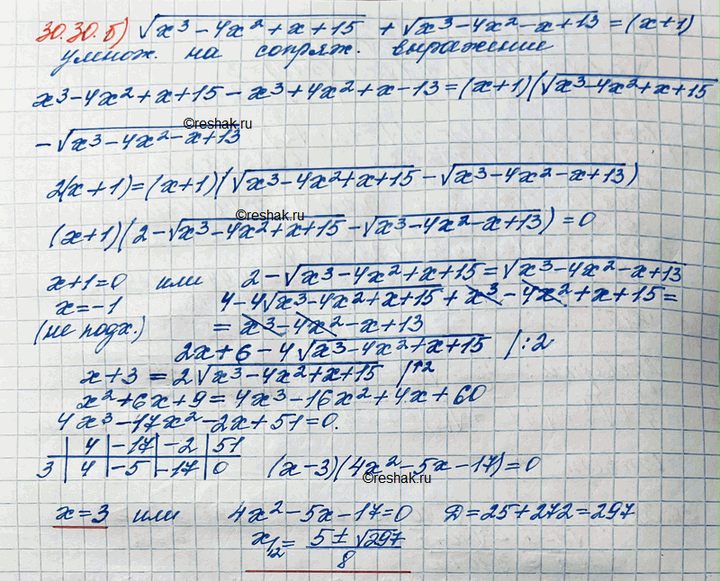 30.30.б) √(x³-4x²+x+15) + √(x³-4x²-x+13) = (x+1)
умнож. на сопряж. выражение
x³-4x²+x+15-x³+4x²+x-13=(x+1)(√(x³-4x²+x+15)
©reshak.ru
-√(x³-4x²-x+13)
2(x+1)=(x+1)(√(x³-4x²+x+15)-√(x³-4x²-x+13))
©reshak.ru
(x+1)(2-√(x³-4x²+x+15)-√(x³-4x²-x+13))=0
x+1=0 или 2-√(x³-4x²+x+15)=√(x³-4x²-x+13)
x=-1 4-4√(x³-4x²+x+15)+x³-4x²+x+15=
(не подх.) =x³-4x²-x+13
2x+6-4√(x³-4x²+x+15) /:2
x+3=2√(x³-4x²+x+15) /↑2
x²+6x+9=4x³-16x²+4x+60
4x³-17x²-2x+51=0.
| 4 | -17 | -2 | 51
3 | 4 | -5 | -17 | 0 (x-3)(4x²-5x-17)=0
©reshak.ru
x=3 или 4x²-5x-17=0 D=25+272=297
x₁,₂=(5±√297)/8